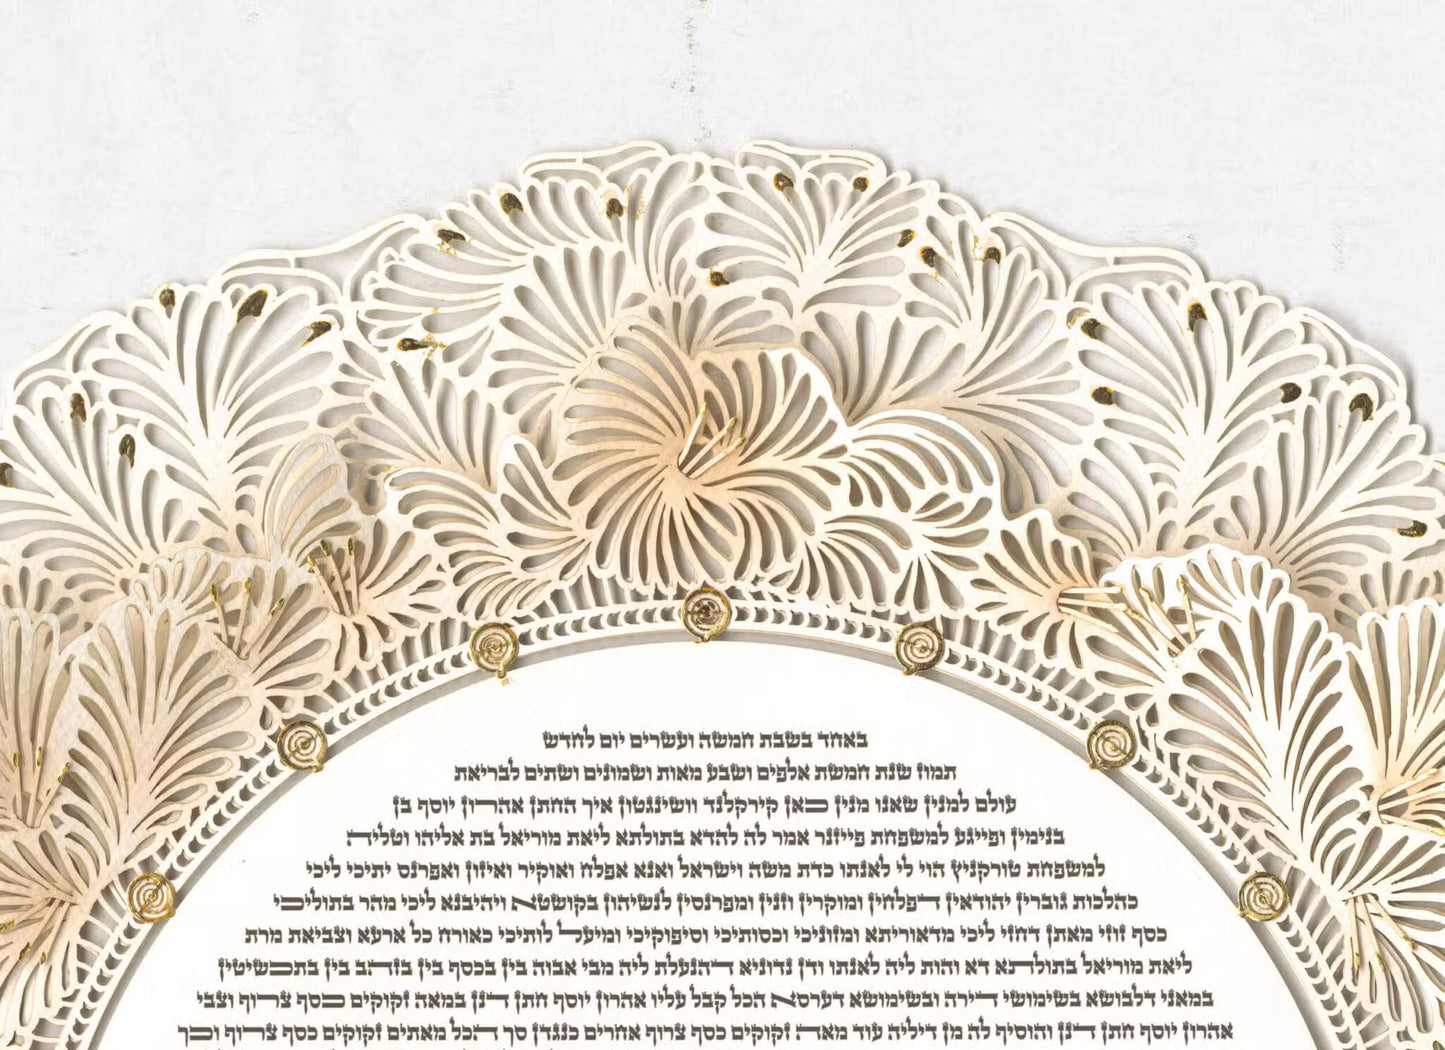 באחד בשבת חמשה ועשרים יום לחדש
תמוז שנת חמשת אלפים ושבע מאות ושמונים ושתים לבריאת
עולם למנין שאנו מנין כאן קירקלנד וושינגטון איך החתן אהרון יוסף בן
בנימין ופייגע למשפחת פייזנר אמר לה להדא בתולתא ליאת מוריאל בת אליהו וטליה
למשפחת טורקניץ הוי לי לאנתו כדת משה וישראל ואנא אפלח ואוקיר ואיזון ואפרנס יתיכי ליכי
כהלכות גוברין יהודאין דפלחין ומוקרין וזנין ומפרנסין לנשיהון בקושטא ויהיבנא ליכי מהר בתוליכי
כסף זוזי מאתן דחזי ליכי מדאוריתא ומזוניכי וכסותיכי וסיפוקיכי ומיעל לותיכי כאורח כל ארעא וצביאת מרת
ליאת מוריאל בתולתא דא והות ליה לאנתו ודן נדוניא דהנעלת ליה מבי אבוה בין בכסף בין בזהב בין בתכשיטין
במאני דלבושא בשימושי דירה ובשימושא דערסא הכל קבל עליו אהרון יוסף חתן דנן במאה זקוקים כסף צרוף וצבי
אהרון יוסף חתן דנן והוסיף לה מן דיליה עוד מאה זקוקים כסף צרוף אחרים כנגדן סך הכל מאתים זקוקים כסף צרוף וכך